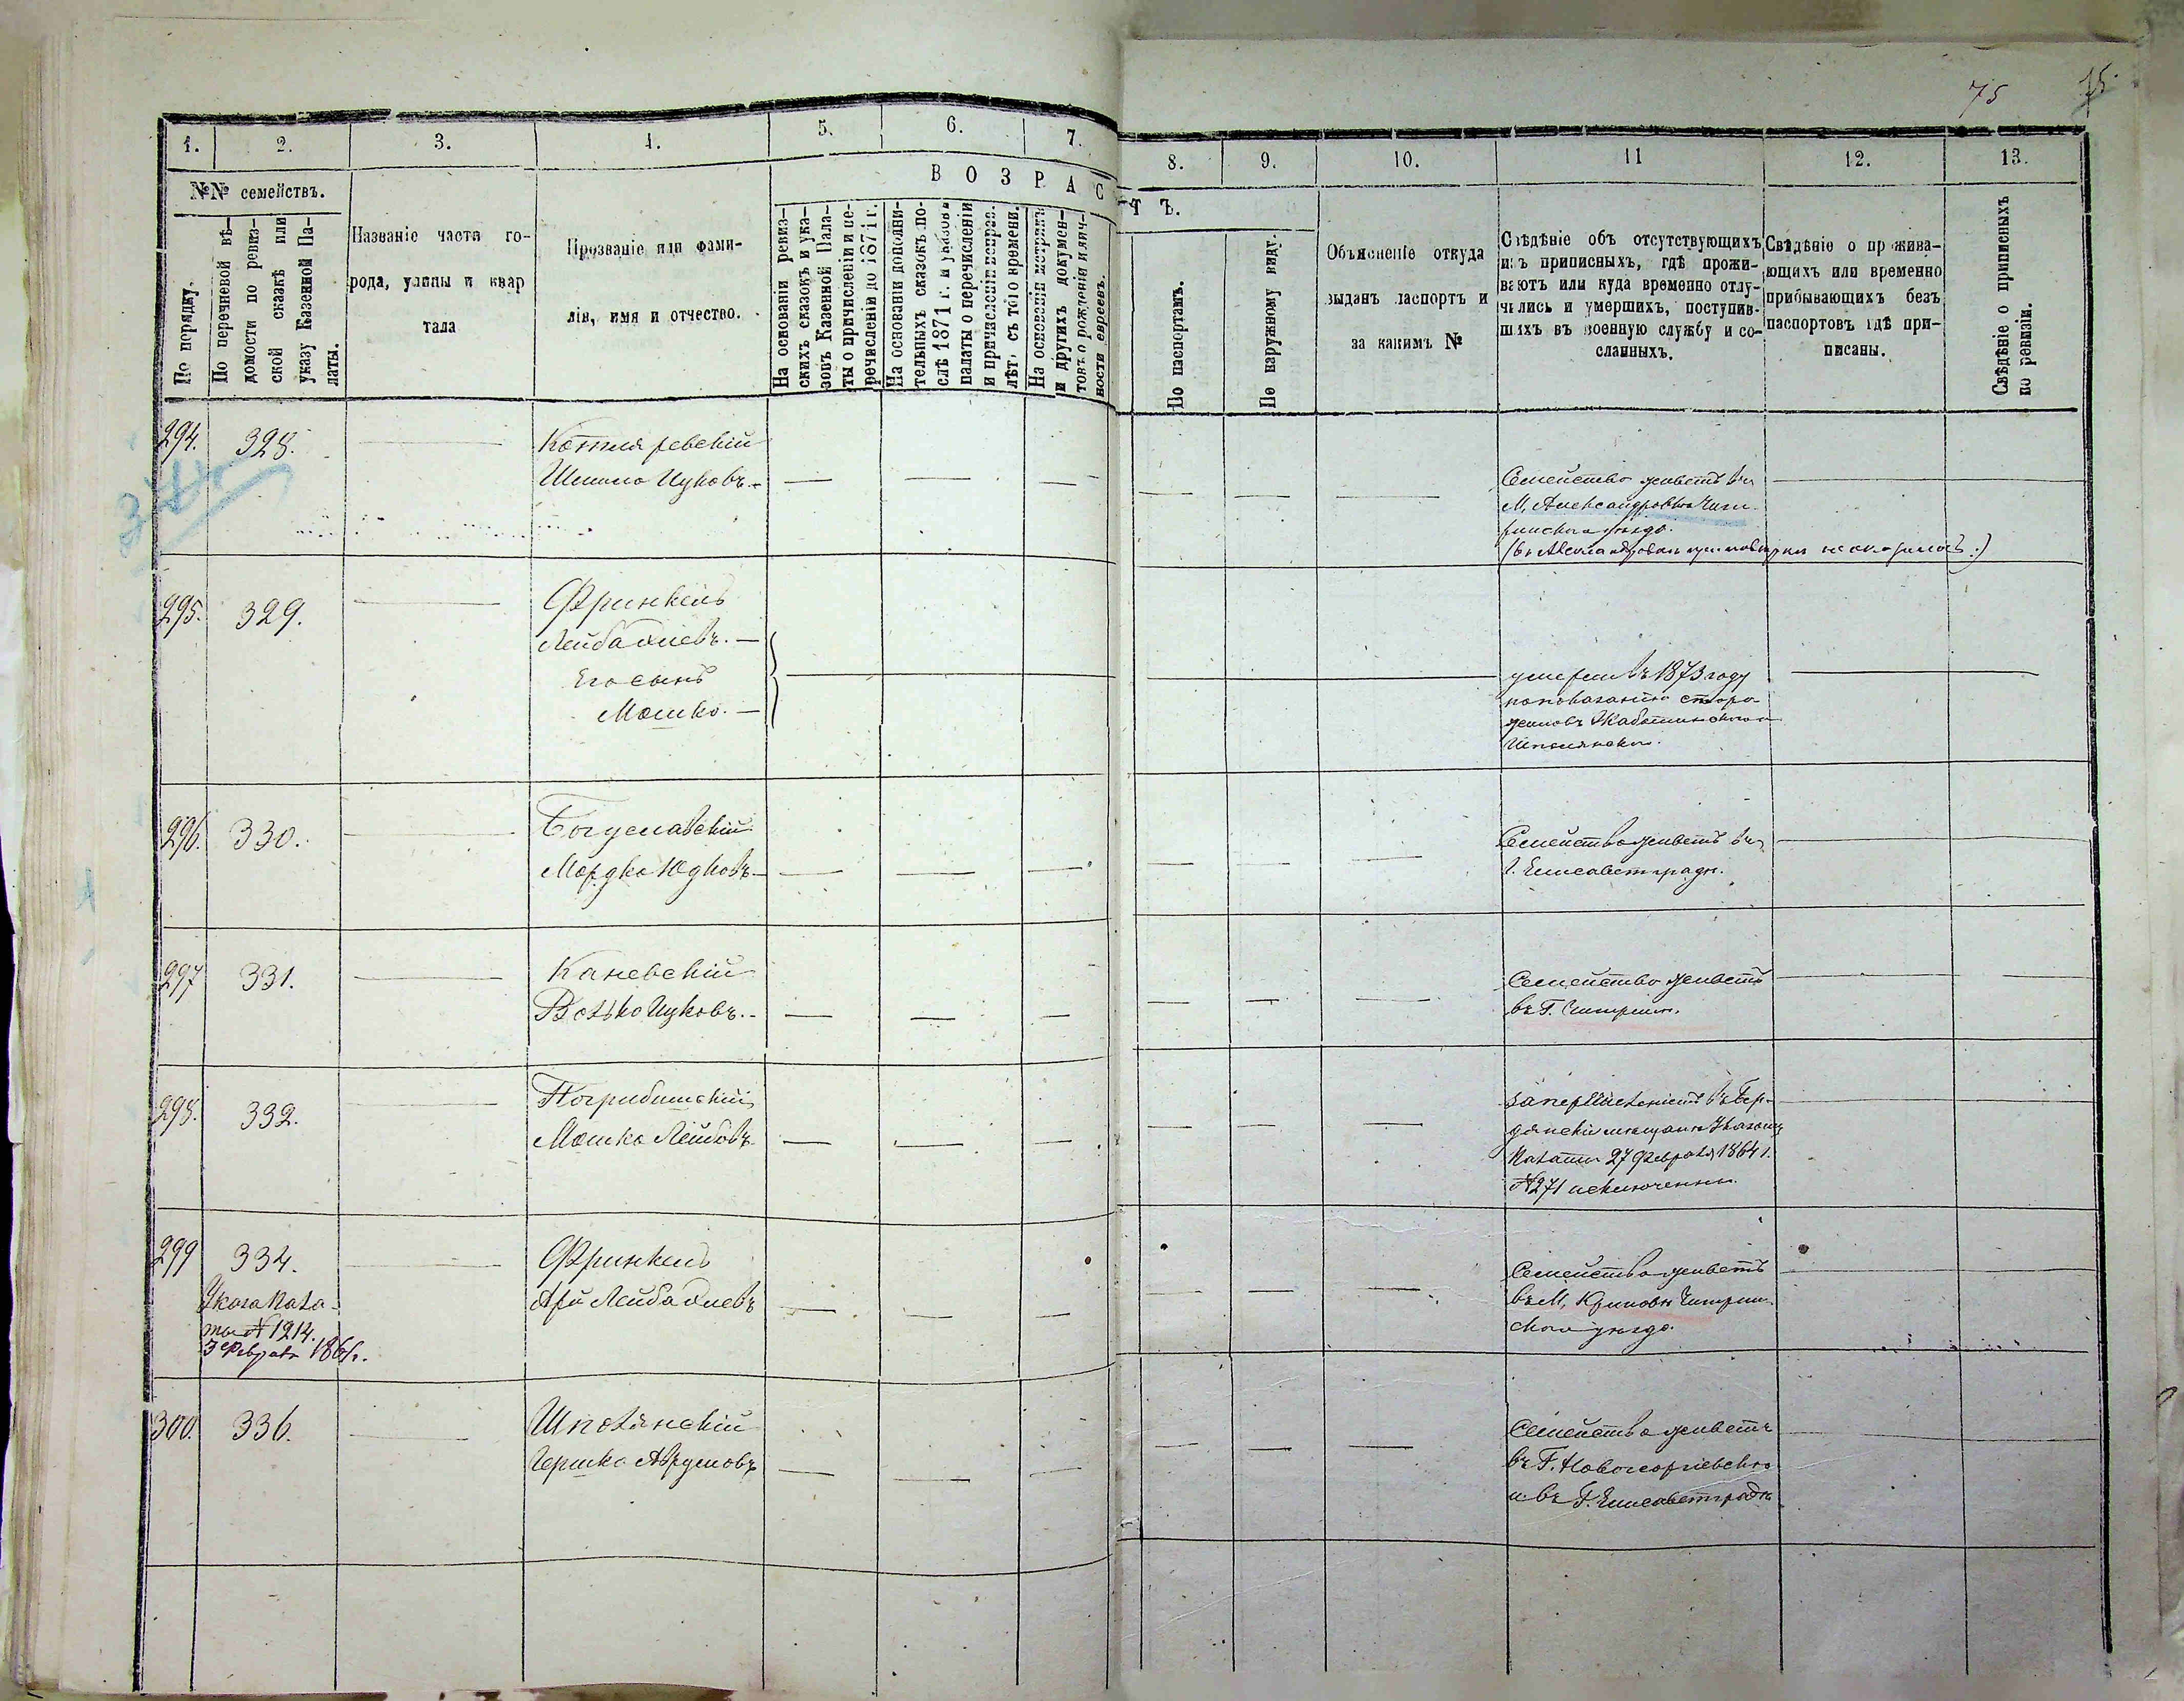 75
75.
1. 2. 3. 4. 5. 6. 7. 8. 9. 10. 11 12. 13.
№№ семействъ.
ВОЗРАСТЪ.
По порядку.
По перечневой вѣ-
домости по ревиз-
ской сказкѣ или
указу Казенной Па-
латы.
Названіе части го-
рода, улицы и квар
тала
Прозваніе или фами-
лія, имя и отчество.
На основаніи ревиз-
скихъ сказокъ и ука-
зовъ Казенной Пала-
ты о причисленіи и пе-
речисленіи до 1871 г.
На основаніи дополни-
тельныхъ сказокъ по-
слѣ 1871 г. и указовъ
палаты о перечисленіи
и причисленіи
лѣтъ съ того времени.
На основаніи метрикъ
и другихъ докумен-
товъ о рожденіи и лич-
ности евреевъ.
По паспортамъ.
По наружному виду.
Объясненіе откуда
выданъ паспортъ и
за какимъ №
Свѣдѣніе объ отсутствующихъ
изъ приписныхъ, гдѣ прожи-
ваютъ или куда временно отлу-
чились и умершихъ, поступив-
шихъ въ военную службу и со-
сланныхъ.
Свѣдѣніе о прожива-
ющихъ или временно
прибывающихъ безъ
паспортовъ гдѣ при-
писаны.
Свѣдѣніе о приписныхъ
по ревизіи.
294. 328. Котляревскій
Шлиомо Ицковъ.
Семейство живетъ въ
М. Александровкѣ Чиги-
ринскаго уѣзда.
(въ Александровкѣ при повѣркѣ не оказалось.)
295. 329. Френкель
Лейба
Его сынъ
Мошко.
умерли въ 1873 году
по показанію старо-
жиловъ Жаботинскаго и
Шполянскаго.
296. 330. Богуславскій
Мордко Юдковъ
Семейство живетъ въ
Г. Елисаветградѣ.
297 331. Каневскій
Волько Ицковъ.
Семейство живетъ
въ Г. Чигринѣ.
298. 332. Погребиский
Мошко Лейбовъ
за перечисленіемъ въ Бер-
дянскіе мѣщане Указомъ
Палаты 27 Февраля 1864 г.
№271 исключены.
299 334. Френкель
Указа Пала-
ты № 1214.
3 Февраля 186
Арій Лейба
Семейство живетъ
въ М. Крыловѣ Чигрин-
скаго уѣзда.
300. 336. Шполянскій
Гершко Аврумовъ
Семейство живетъ
въ Г. Новогеоргіевскѣ
и въ Г. Елисаветградѣ